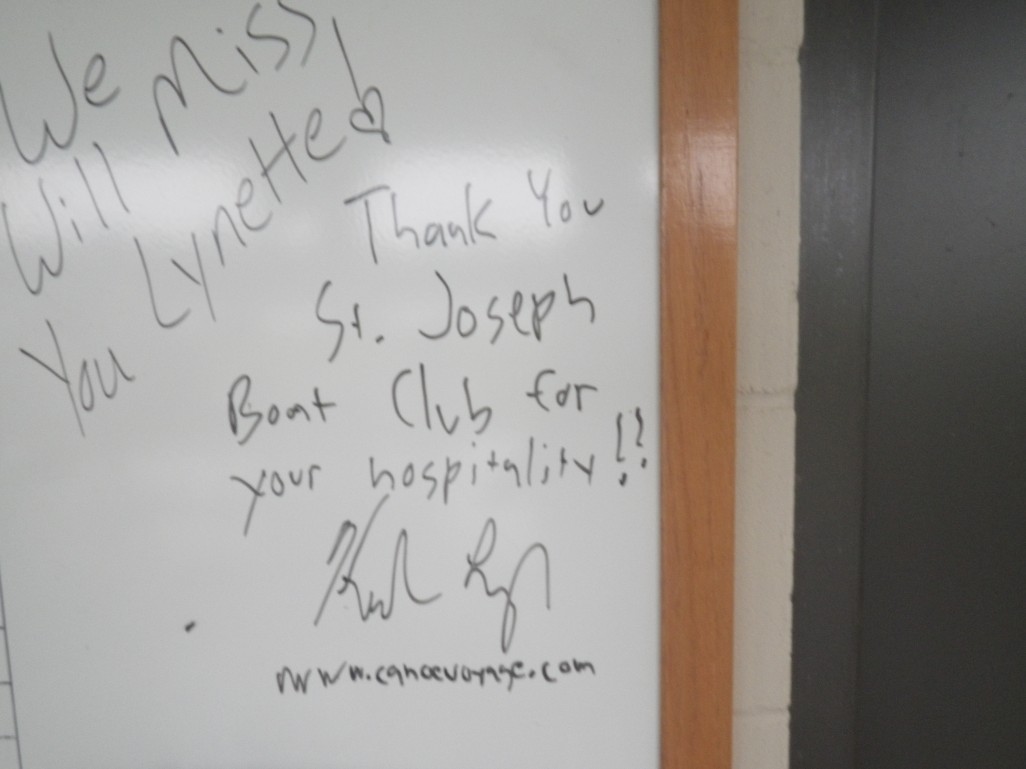 We Miss
Will
You Lynette!
Thank You
St. Joseph
Boat Club for
your hospitality!!
www.canoevoyage.com